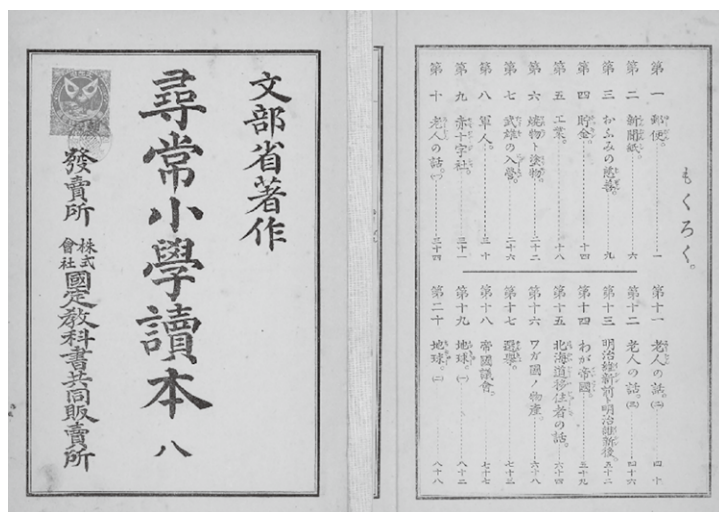 文部省著作
尋常小學讀本 八
發賣所 株式會社 國定教科書共同販賣所
もくろく。
第一 郵便。 一
第二 新聞紙。 六
第三 おふみの慈善。 九
第四 貯金。 十四
第五 工業。 十八
第六 燒物ト塗物。 二十二
第七 武雄の入營。 二十六
第八 軍人。 三十
第九 赤十字社。 三十一
第十 老人の話。(一) 三十四
第十一 老人の話。(二) 四十
第十二 老人の話。(三) 四十六
第十三 明治維新前ト明治維新後 五十二
第十四 わが帝國。 五十九
第十五 北海道移住者の話。 六十四
第十六 ワガ國ノ物産。 六十八
第十七 選擧。 七十三
第十八 帝國議會。 七十七
第十九 地球。(一) 八十二
第二十 地球。(二) 八十八